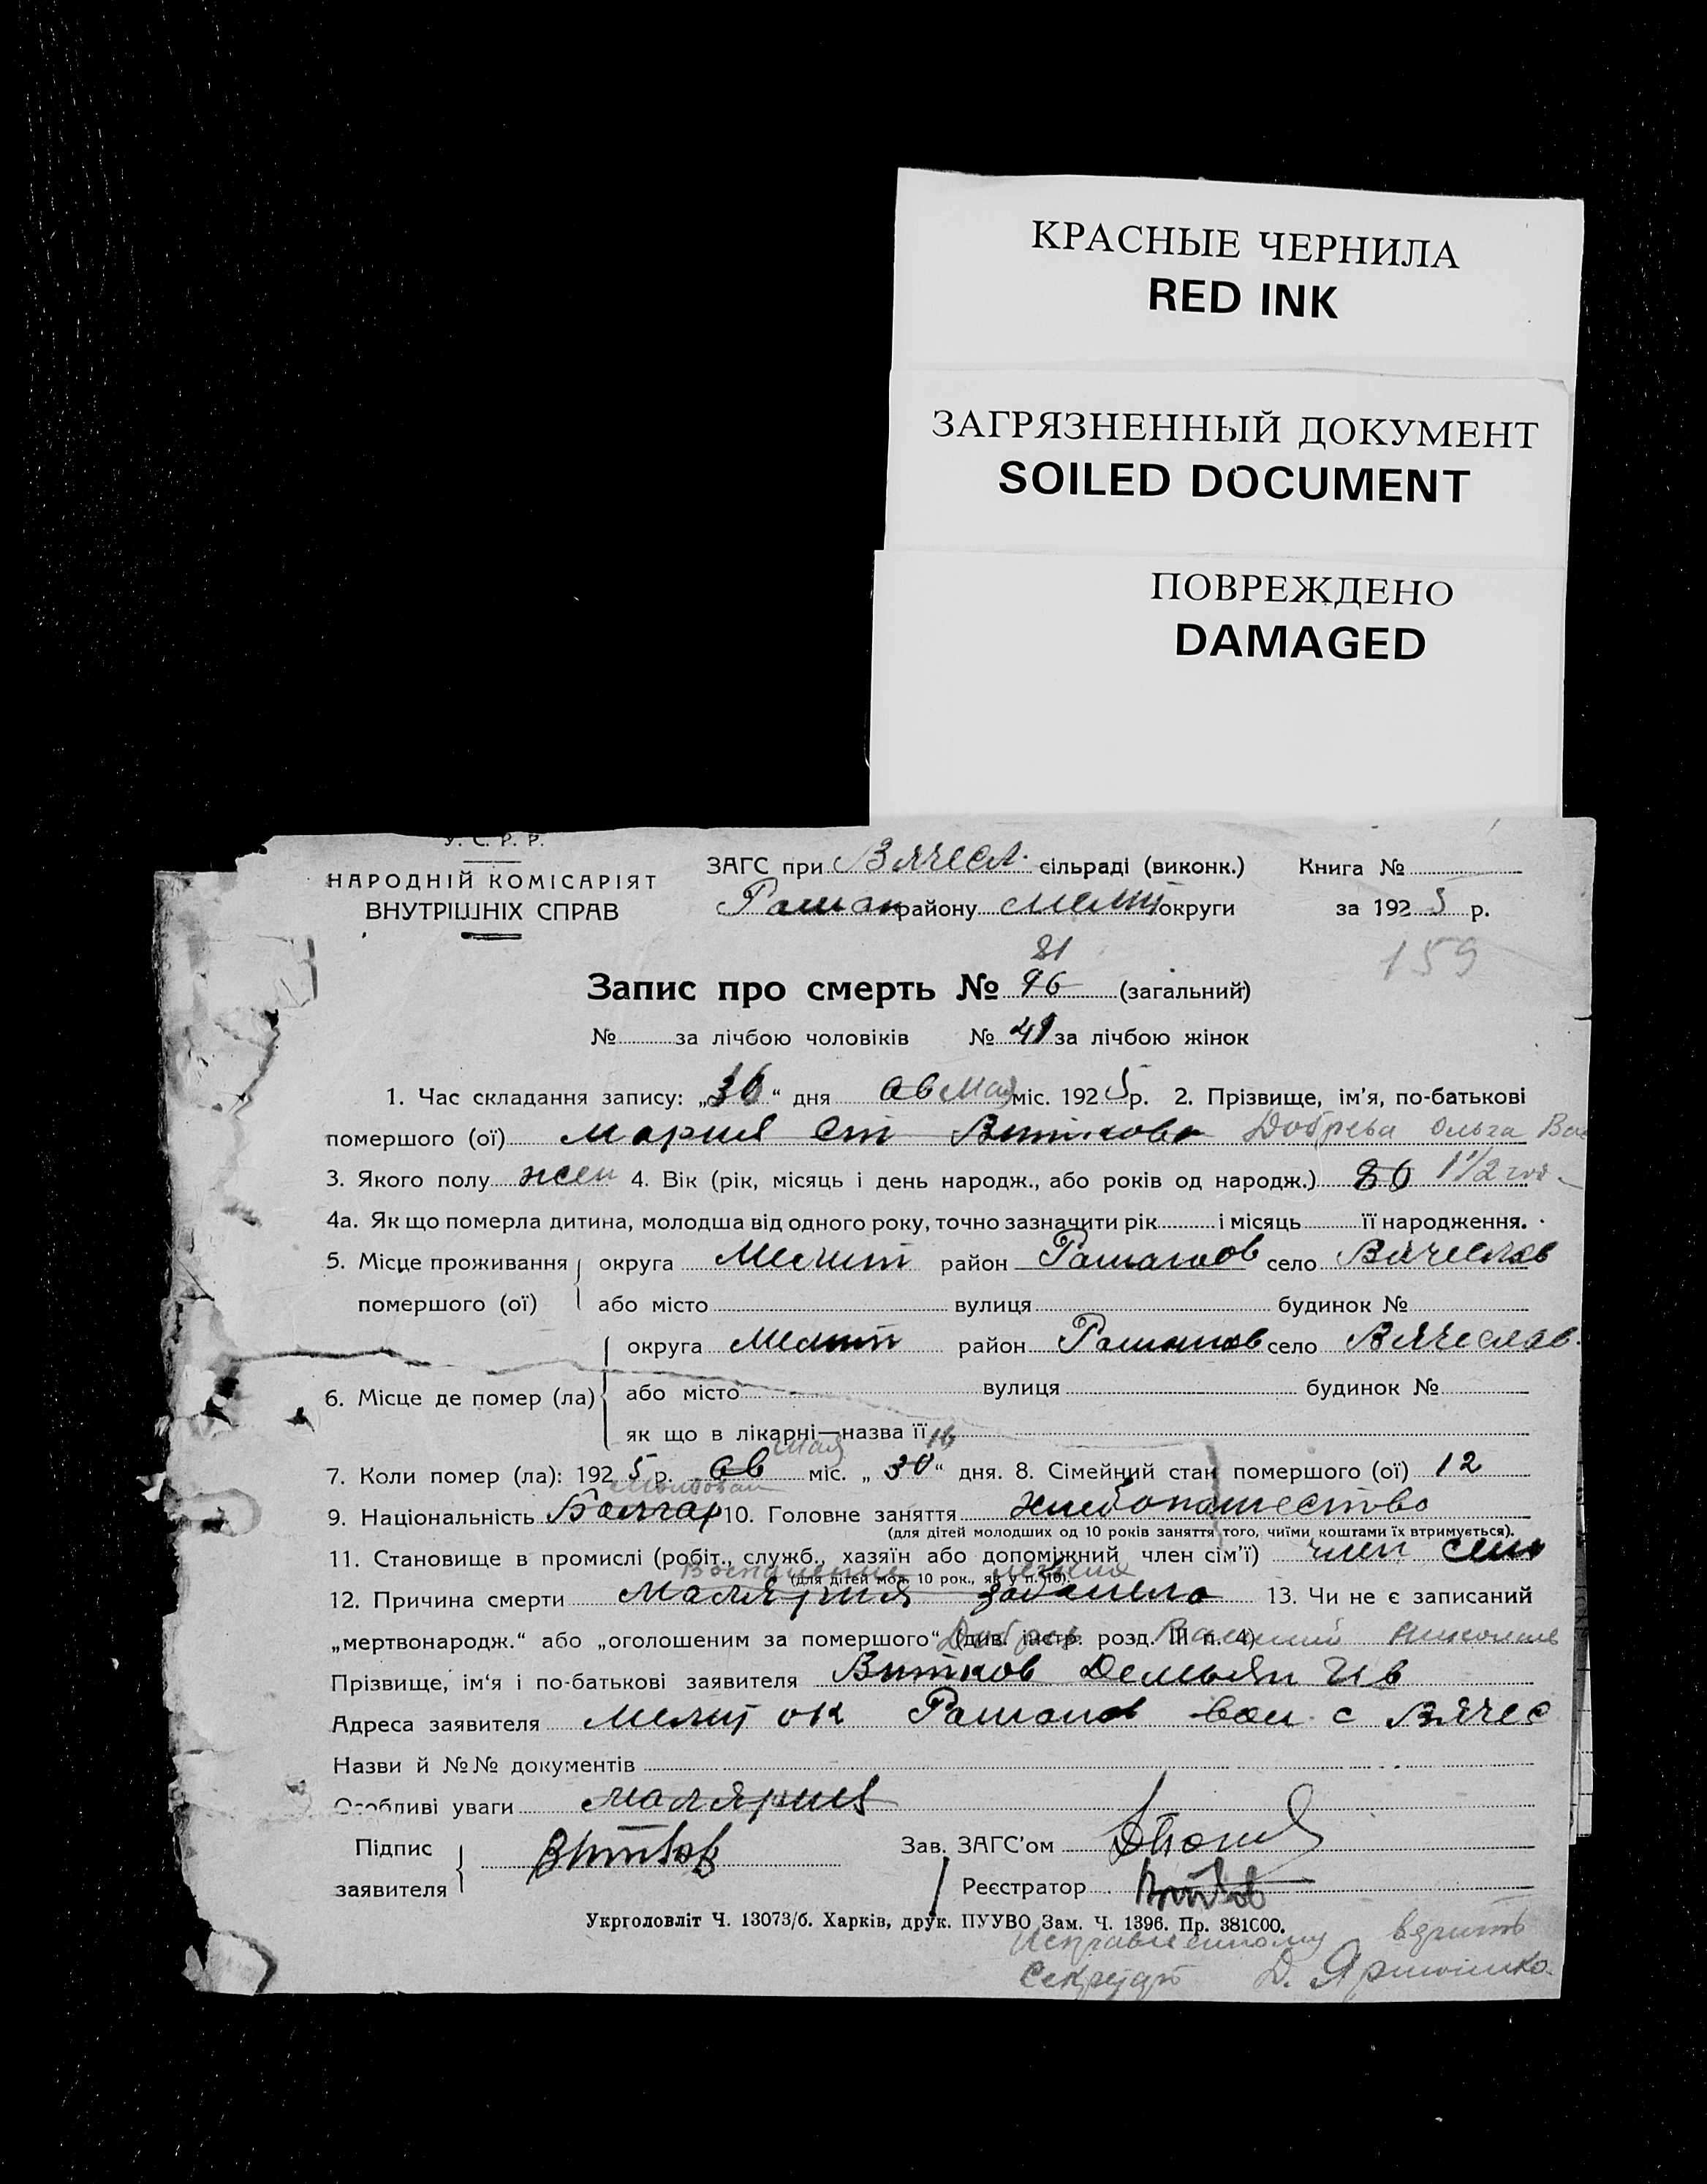 КРАСНЫЕ ЧЕРНИЛА
RED INK
ЗАГРЯЗНЕННЫЙ ДОКУМЕНТ
SOILED DOCUMENT
ПОВРЕЖДЕНО
DAMAGED
У. С. Р. Р.
НАРОДНІЙ КОМІСАРІЯТ
ВНУТРІШНІХ СПРАВ
ЗАГС при Вячесл. сільраді (виконк.) Книга №
Роман району Мелит округи за 1925 р.
159
21
Запис про смерть № 96 (загальний)
№ за лічбою чоловіків № 41 за лічбою жінок
1. Час складання запису: „ “ дня ав Мая міс. 1925 р. 2. Прізвище, ім’я, по-батькові
помершого (ої) Мария Ст Виткова Добрева Ольга Вас
3. Якого полу жен 4. Вік (рік, місяць і день народж., або років од народж.) 1 1/2
4а. Як що померла дитина, молодша від одного року, точно зазначити рік і місяць її народження.
5. Місце проживання округа Мелит район Романов село Вячеслав
помершого (ої) або місто вулиця будинок №
округа Мелит район Романов село Вячеслав.
6. Місце де помер (ла) або місто вулиця будинок №
як що в лікарні—назва її
мая 16
7. Коли помер (ла): 1925 р. ав міс. „30“ дня. 8. Сімейний стан помершого (ої) 12
Молдован
9. Національність Болгар 10. Головне заняття Хлебопашество
(для дітей молодших од 10 років заняття того, чиїми коштами їх втримується).
11. Становище в промислі (робіт., служб., хазяїн або допоміжний член сім’ї) член сем
Воспаление легких
(для дітей мол. 10 рок., як у п. 10).
12. Причина смерти Малярия 13. Чи не є записаний
„мертвонародж.“ або „оголошеним за помершого“ (див. інстр. розд. III п. 4) Добрев
Прізвище, ім‘я і по-батькові заявителя Витков Демьян Ив
Адреса заявителя Мелит ок Романов с Вячес
Назви й №№ документів
Особливі уваги малярия
Підпис заявителя Витков Зав. ЗАГС’ом
Реєстратор Витков
Укрголовліт Ч. 13073/б. Харків, друк. ПУУВО Зам. Ч. 1396. Пр. 381000.
Исправленному верить
Секретарь Д.